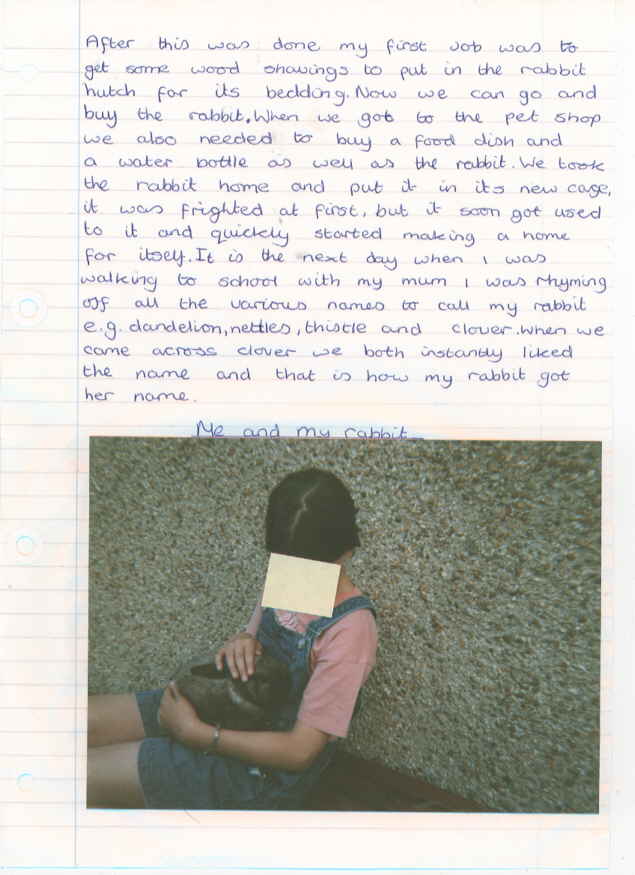 After this was done my first job was to
get some wood shavings to put in the rabbit
hutch for its bedding. Now we can go and
buy the rabbit. When we got to the pet shop
we also needed to buy a food dish and
a water bottle as well as the rabbit. We took
the rabbit home and put it in its new cage,
it was frighted at first, but it soon got used
to it and quickly started making a home
for itself. It is the next day when I was
walking to school with my mum I was rhyming
off all the various names to call my rabbit
e.g. dandelion, nettles, thistle and clover. When we
came across clover we both instantly liked
the name and that is how my rabbit got
her name.
Me and my rabbit